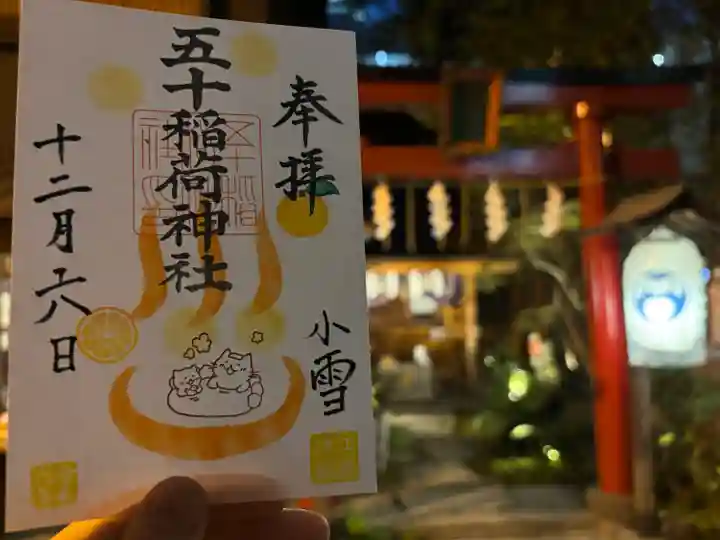 奉拝
五十稲荷神社
小雪
十二月六日